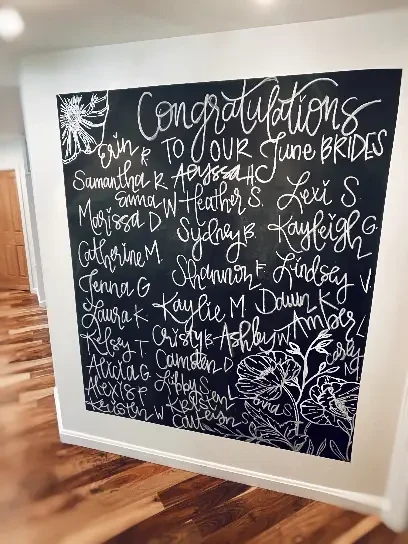 Congratulations
TO OUR June BRIDES
Erin R Alyssa H
Samantha R Heather S. Lexi S
Emma W
Marissa D Sydney B Kayleigh G
Catherine M. Shannon F. Lindsey V.
Jenna G Kaylie M Dawn K
Laura K Cristy Ashby Amber
Kelsey T. Camden D Casey
Alicia G Libby
Alexis F Kelsey
Kristen W